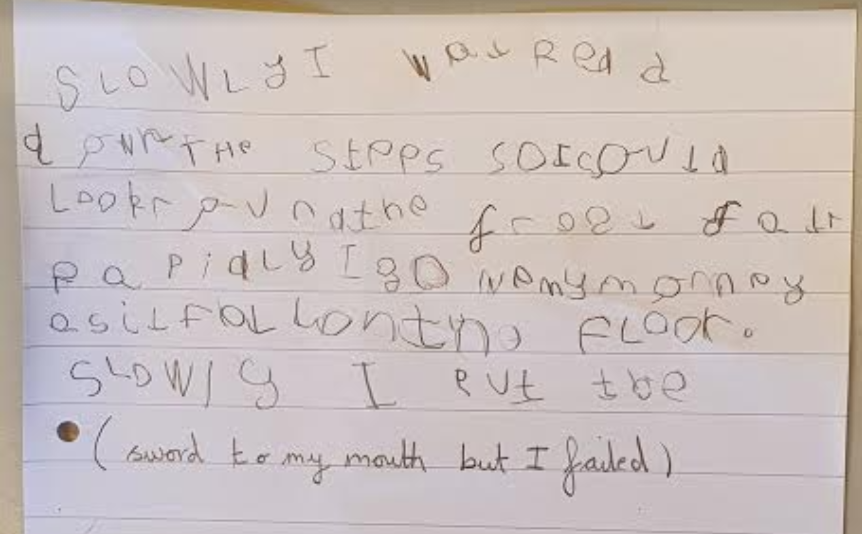 SLOWLY I was Read d
down THe StePPs SOIcould
Lookr ound the frost fair
RaPidLY I go wemy monney
asit FaL Lonthe FLOOr.
SLOWly I Put the
(sword to my mouth but I failed)